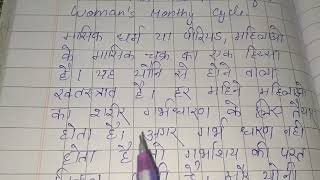 Woman's Monthy Cycle
मासिक धर्म या पीरियड, महिलाओं
के मासिक चक्र का एक हिस्सा
है। यह योनि से होने वाला
रक्तस्त्राव है। हर महिने महिलाओं
का शरीर गर्भधारण के लिए तैयार
होता है। अगर गर्भ धारण नहीं
होता है तो गर्भाशय की परत